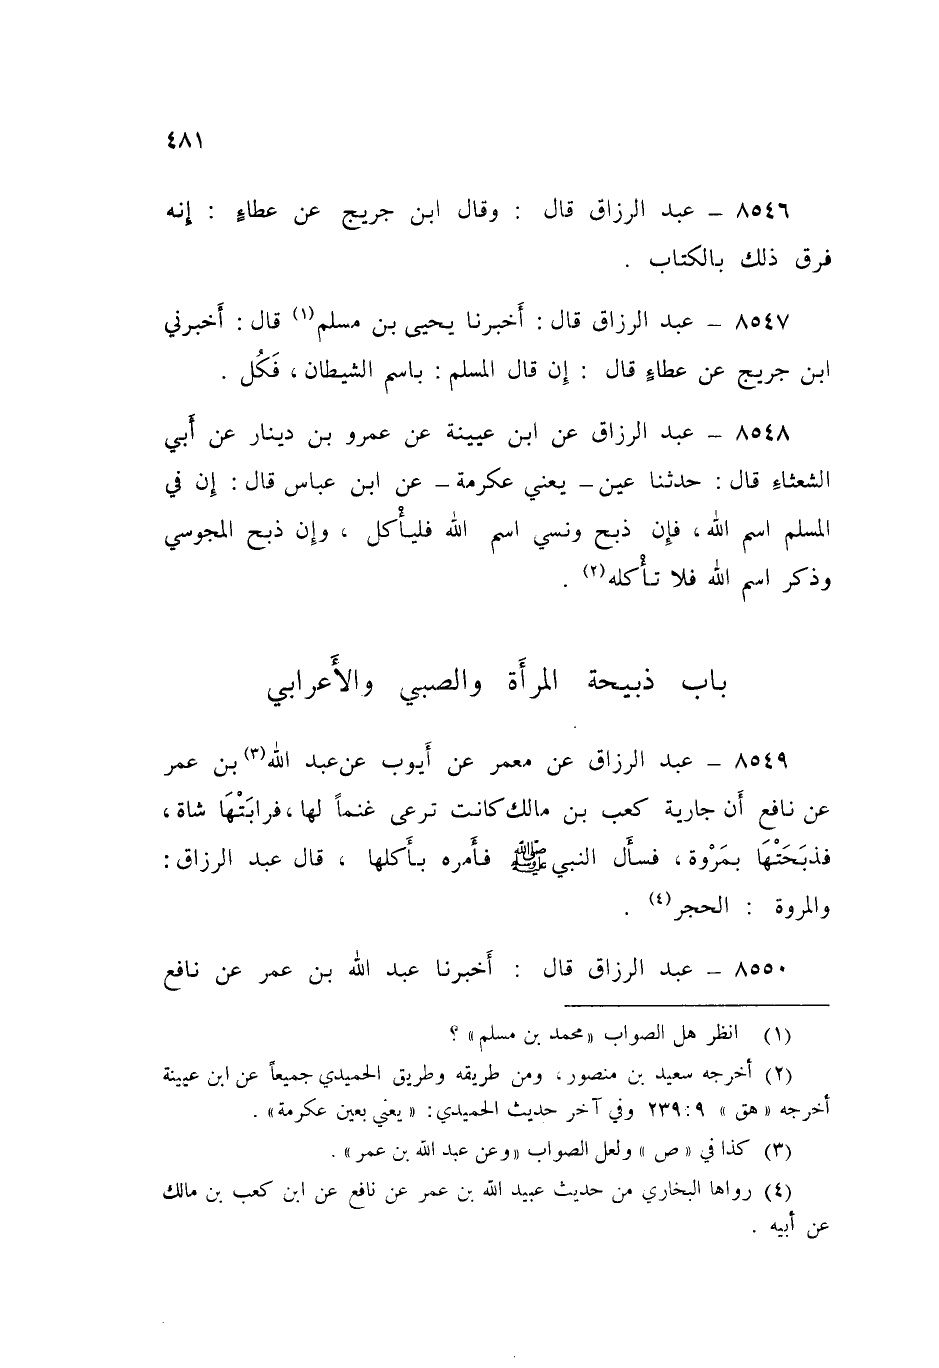 ٤٨١
٨٥٤٦ – عبد الرزاق قال : وقال ابن جريج عن عطاءٍ : إنه
فرق ذلك بالكتاب .
٨٥٤٧ – عبد الرزاق قال : أَخبرنا يحيى بن مسلم(١) قال : أَخبرني
ابن جريج عن عطاءٍ قال : إن قال المسلم : باسم الشيطان ، فَكُل .
٨٥٤٨ – عبد الرزاق عن ابن عيينة عن عمرو بن دينار عن أَبي
الشعثاءِ قال : حدثنا عين – يعني عكرمة – عن ابن عباس قال : إن في
المسلم اسم الله ، فإن ذبح ونسي اسم الله فليأْكل ، وإن ذبح المجوسي
وذكر اسم الله فلا تأْكله(٢) .
باب ذبيحة المرأَة والصبي والأَعرابي
٨٥٤٩ – عبد الرزاق عن معمر عن أَيوب عن عبد الله(٣) بن عمر
عن نافع أَن جارية كعب بن مالك كانت ترعى غنماً لها ، فرابَتْهَا شاة ،
فذبَحَتْهَا بمَرْوة ، فسأَل النبي ﷺ فأَمره بأَكلها ، قال عبد الرزاق :
والمروة : الحجر(٤) .
٨٥٥٠ – عبد الرزاق قال : أَخبرنا عبد الله بن عمر عن نافع
(١) انظر هل الصواب «محمد بن مسلم» ؟
(٢) أخرجه سعيد بن منصور ، ومن طريقه وطريق الحميدي جميعاً عن ابن عيينة
أخرجه «هق» ٩ : ٢٣٩ وفي آخر حديث الحميدي : «يعني بعين عكرمة» .
(٣) كذا في «ص» ولعل الصواب «وعن عبد الله بن عمر» .
(٤) رواها البخاري من حديث عبيد الله بن عمر عن نافع عن ابن كعب بن مالك
عن أبيه .